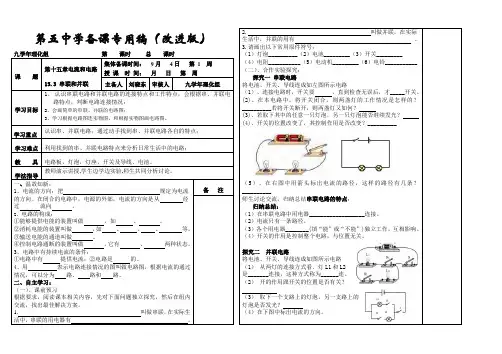 第五中学备课专用稿（改进版）
九学年理化组 第 课时 总 课时
课 题
第十五章电流和电路
15.3 串联和并联
集体备课时间： 9月 4日 第 1 周
授 课 时 间： 月 日 第 周
主备人 刘晓东 审核人 九学年理化组
学习目标
1、认识串联电路和并联电路的连接特点和工作特点，会根据串、并联电路特点，判断电路连接情况；
2、会画简单的串联、并联的电路图；
学习重点
认识串、并联电路，通过动手找到串、并联电路各自的特点；
学习难点
利用找到的串、并联电路特点来分析日常生活中的电路；
教 具
电路板、灯泡、灯座、开关及导线、电池。
学法指导
教师演示讲授,学生边学边实验,师生共同分析讨论。
备 注
一、温故知新：
1、电流的方向：把 规定为电流的方向。在闭合的电路中，电源的外部，电流的方向是从 经过 流向 。
2、电路的构成：
①能够提供电能的装置叫做 ，如 、 。
②消耗电能的装置叫做 ，如 、 、 等。
③输送电能的通道叫做 。
④控制电路通断的装置叫做 ，它有 、 两种状态。
3、电路中有持续电流的条件：
①电路中有 提供电流；②电路是 的。
4、用 表示电路连接情况的图叫做电路图；根据电流的通过情况，可以分为 路、 路和 路。
二、自主学习：
（一）、课前预习
根据要求，阅读课本相关内容，先对下面问题独立探究，然后在组内交流，找出最佳解决方案。
1、 叫做串联,在实际生活中,串联的用电器有 。
2、 叫做并联；在实际生活中，并联的用有 。
3.请画出以下常用部件符号：
（1）灯泡 （2）电池 （3）开关
（4）电阻 （5）电动机 （6）电铃
（二）、合作实验探究：
探究一 串联电路
将电池、开关、导线连成如左图所示电路
（1）、连接电路时，开关要 ，直到检查无误后，才 开关。
（2）、在本电路中，将开关闭合，则两盏灯的工作情况是怎样的？ 若将开关断开，则两盏灯又如何？
（3）、若取下其中的任意一只灯泡，另一只灯泡能否继续发光？
（4）、开关的位置改变了，其控制作用是否改变？
（5）、在右图中用箭头标出电流的路径，这样的路径有几条？
师生讨论交流，归纳总结串联电路的特点：
归纳总结：
（1）在串联电路中用电器 连接。
（2）电流只有一条路径。
（3）各个用电器 （填“能”或“不能”）独立工作，互相影响。
（4）开关的作用是控制整个电路，与位置无关。
探究二 并联电路
将电池、开关、导线连成如图所示电路
（1） 从两灯的连接方式看，灯 L1 和 L2 是 连接，这种方式称为 连。
（2） 开的作用跟开关的位置是否有关？
（3） 取下一个支路上的灯泡，另一支路上的灯泡是否发光？
（4）在下图中标出电流的方向。